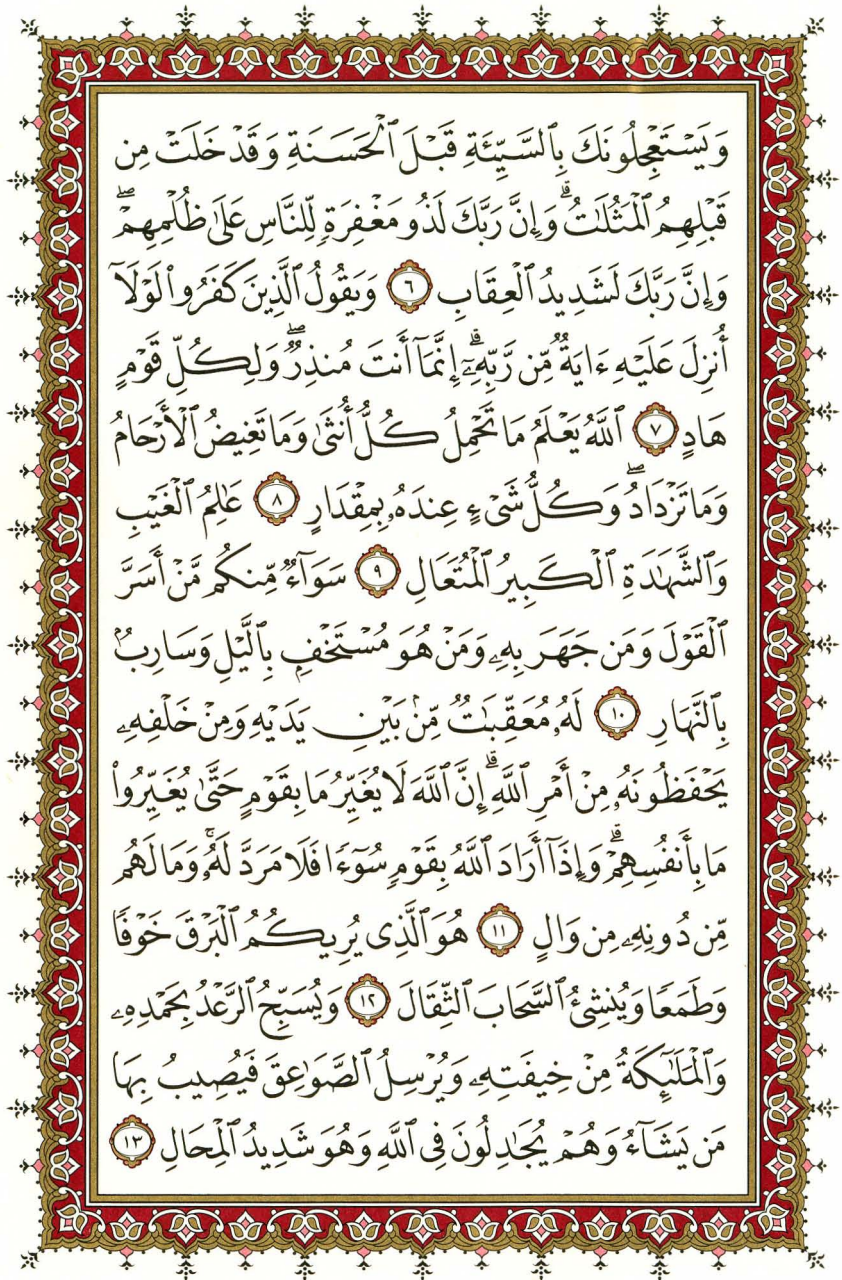 وَيَسْتَعْجِلُونَكَ بِٱلسَّيِّئَةِ قَبْلَ ٱلْحَسَنَةِ وَقَدْ خَلَتْ مِن
قَبْلِهِمُ ٱلْمَثُلَٰتُ ۗ وَإِنَّ رَبَّكَ لَذُو مَغْفِرَةٍ لِّلنَّاسِ عَلَىٰ ظُلْمِهِمْ ۖ
وَإِنَّ رَبَّكَ لَشَدِيدُ ٱلْعِقَابِ ٦ وَيَقُولُ ٱلَّذِينَ كَفَرُوا۟ لَوْلَآ
أُنزِلَ عَلَيْهِ ءَايَةٌ مِّن رَّبِّهِۦٓ ۗ إِنَّمَآ أَنتَ مُنذِرٌ ۖ وَلِكُلِّ قَوْمٍ
هَادٍ ٧ ٱللَّهُ يَعْلَمُ مَا تَحْمِلُ كُلُّ أُنثَىٰ وَمَا تَغِيضُ ٱلْأَرْحَامُ
وَمَا تَزْدَادُ ۖ وَكُلُّ شَىْءٍ عِندَهُۥ بِمِقْدَارٍ ٨ عَٰلِمُ ٱلْغَيْبِ
وَٱلشَّهَٰدَةِ ٱلْكَبِيرُ ٱلْمُتَعَالِ ٩ سَوَآءٌ مِّنكُم مَّنْ أَسَرَّ
ٱلْقَوْلَ وَمَن جَهَرَ بِهِۦ وَمَنْ هُوَ مُسْتَخْفٍۭ بِٱلَّيْلِ وَسَارِبٌۢ
بِٱلنَّهَارِ ١٠ لَهُۥ مُعَقِّبَٰتٌ مِّنۢ بَيْنِ يَدَيْهِ وَمِنْ خَلْفِهِۦ
يَحْفَظُونَهُۥ مِنْ أَمْرِ ٱللَّهِ ۗ إِنَّ ٱللَّهَ لَا يُغَيِّرُ مَا بِقَوْمٍ حَتَّىٰ يُغَيِّرُوا۟
مَا بِأَنفُسِهِمْ ۗ وَإِذَآ أَرَادَ ٱللَّهُ بِقَوْمٍ سُوٓءًا فَلَا مَرَدَّ لَهُۥ ۚ وَمَا لَهُم
مِّن دُونِهِۦ مِن وَالٍ ١١ هُوَ ٱلَّذِى يُرِيكُمُ ٱلْبَرْقَ خَوْفًا
وَطَمَعًا وَيُنشِئُ ٱلسَّحَابَ ٱلثِّقَالَ ١٢ وَيُسَبِّحُ ٱلرَّعْدُ بِحَمْدِهِۦ
وَٱلْمَلَٰٓئِكَةُ مِنْ خِيفَتِهِۦ وَيُرْسِلُ ٱلصَّوَٰعِقَ فَيُصِيبُ بِهَا
مَن يَشَآءُ وَهُمْ يُجَٰدِلُونَ فِى ٱللَّهِ وَهُوَ شَدِيدُ ٱلْمِحَالِ ١٣